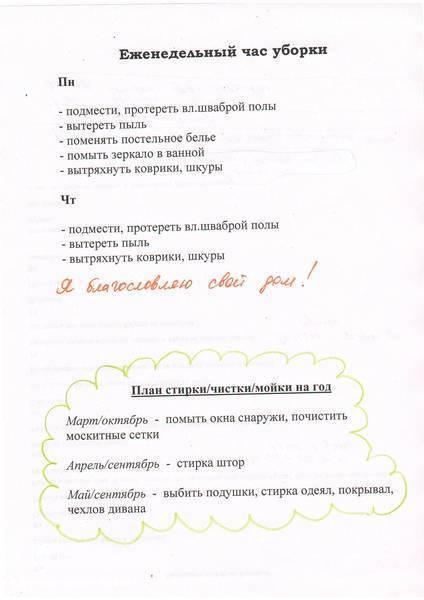 Еженедельный час уборки
Пн
- подмести, протереть вл.шваброй полы
- вытереть пыль
- поменять постельное белье
- помыть зеркало в ванной
- вытряхнуть коврики, шкуры
Чт
- подмести, протереть вл.шваброй полы
- вытереть пыль
- вытряхнуть коврики, шкуры
Я благословляю свой дом!
План стирки/чистки/мойки на год
Март/октябрь - помыть окна снаружи, почистить
москитные сетки
Апрель/сентябрь - стирка штор
Май/сентябрь - выбить подушки, стирка одеял, покрывал,
чехлов дивана